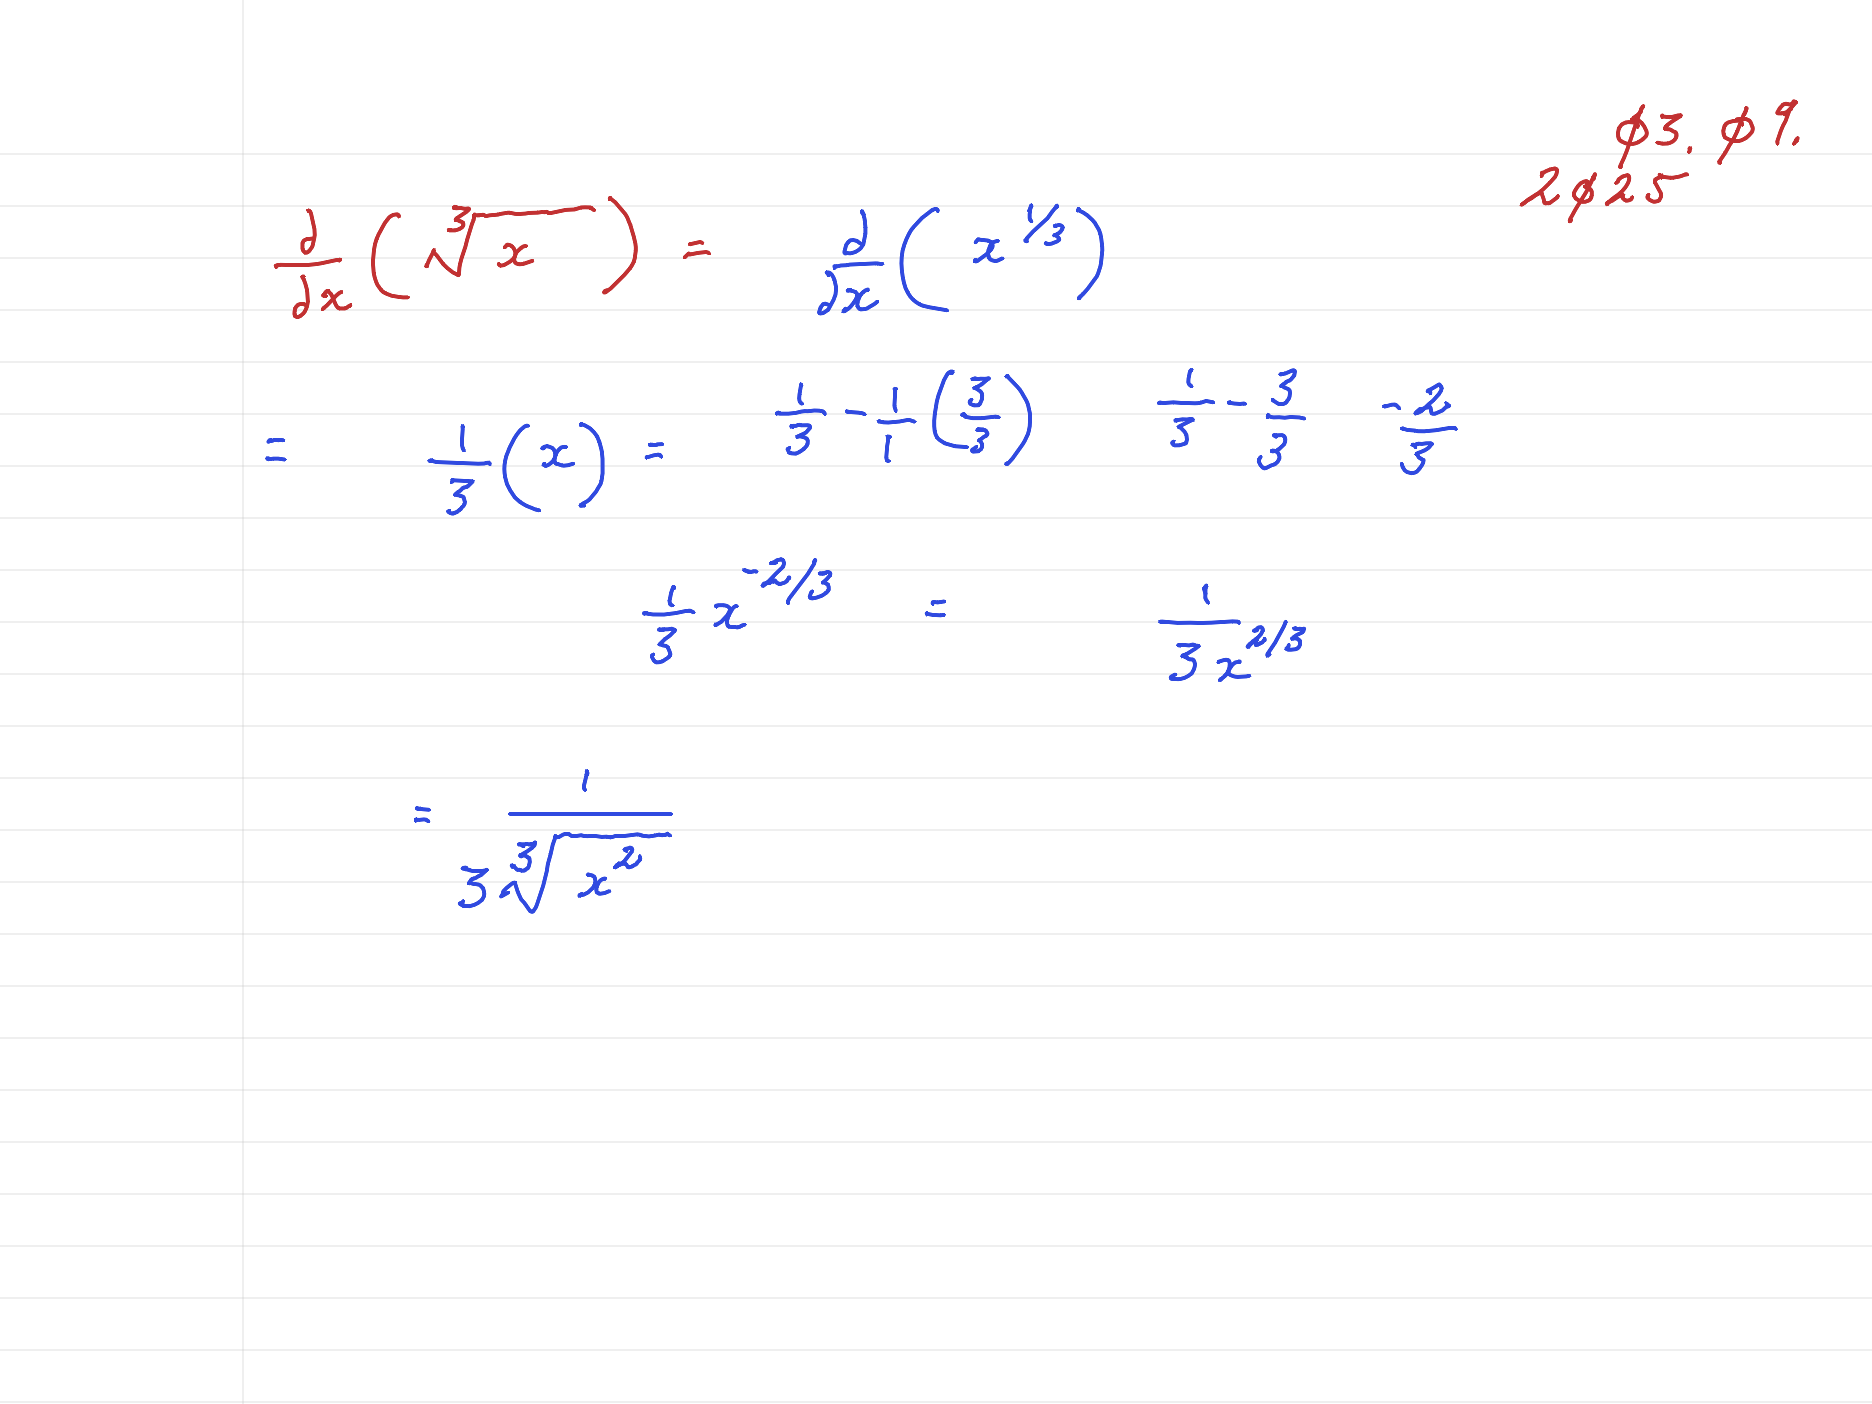 ϕ3. ϕ9.
2ϕ25
d/dx (∛x) = d/dx (x^1/3)
= 1/3 (x) = 1/3 - 1/1 (3/3) 1/3 - 3/3 -2/3
1/3 x^-2/3 = 1/3x^2/3
= 1/3∛x^2